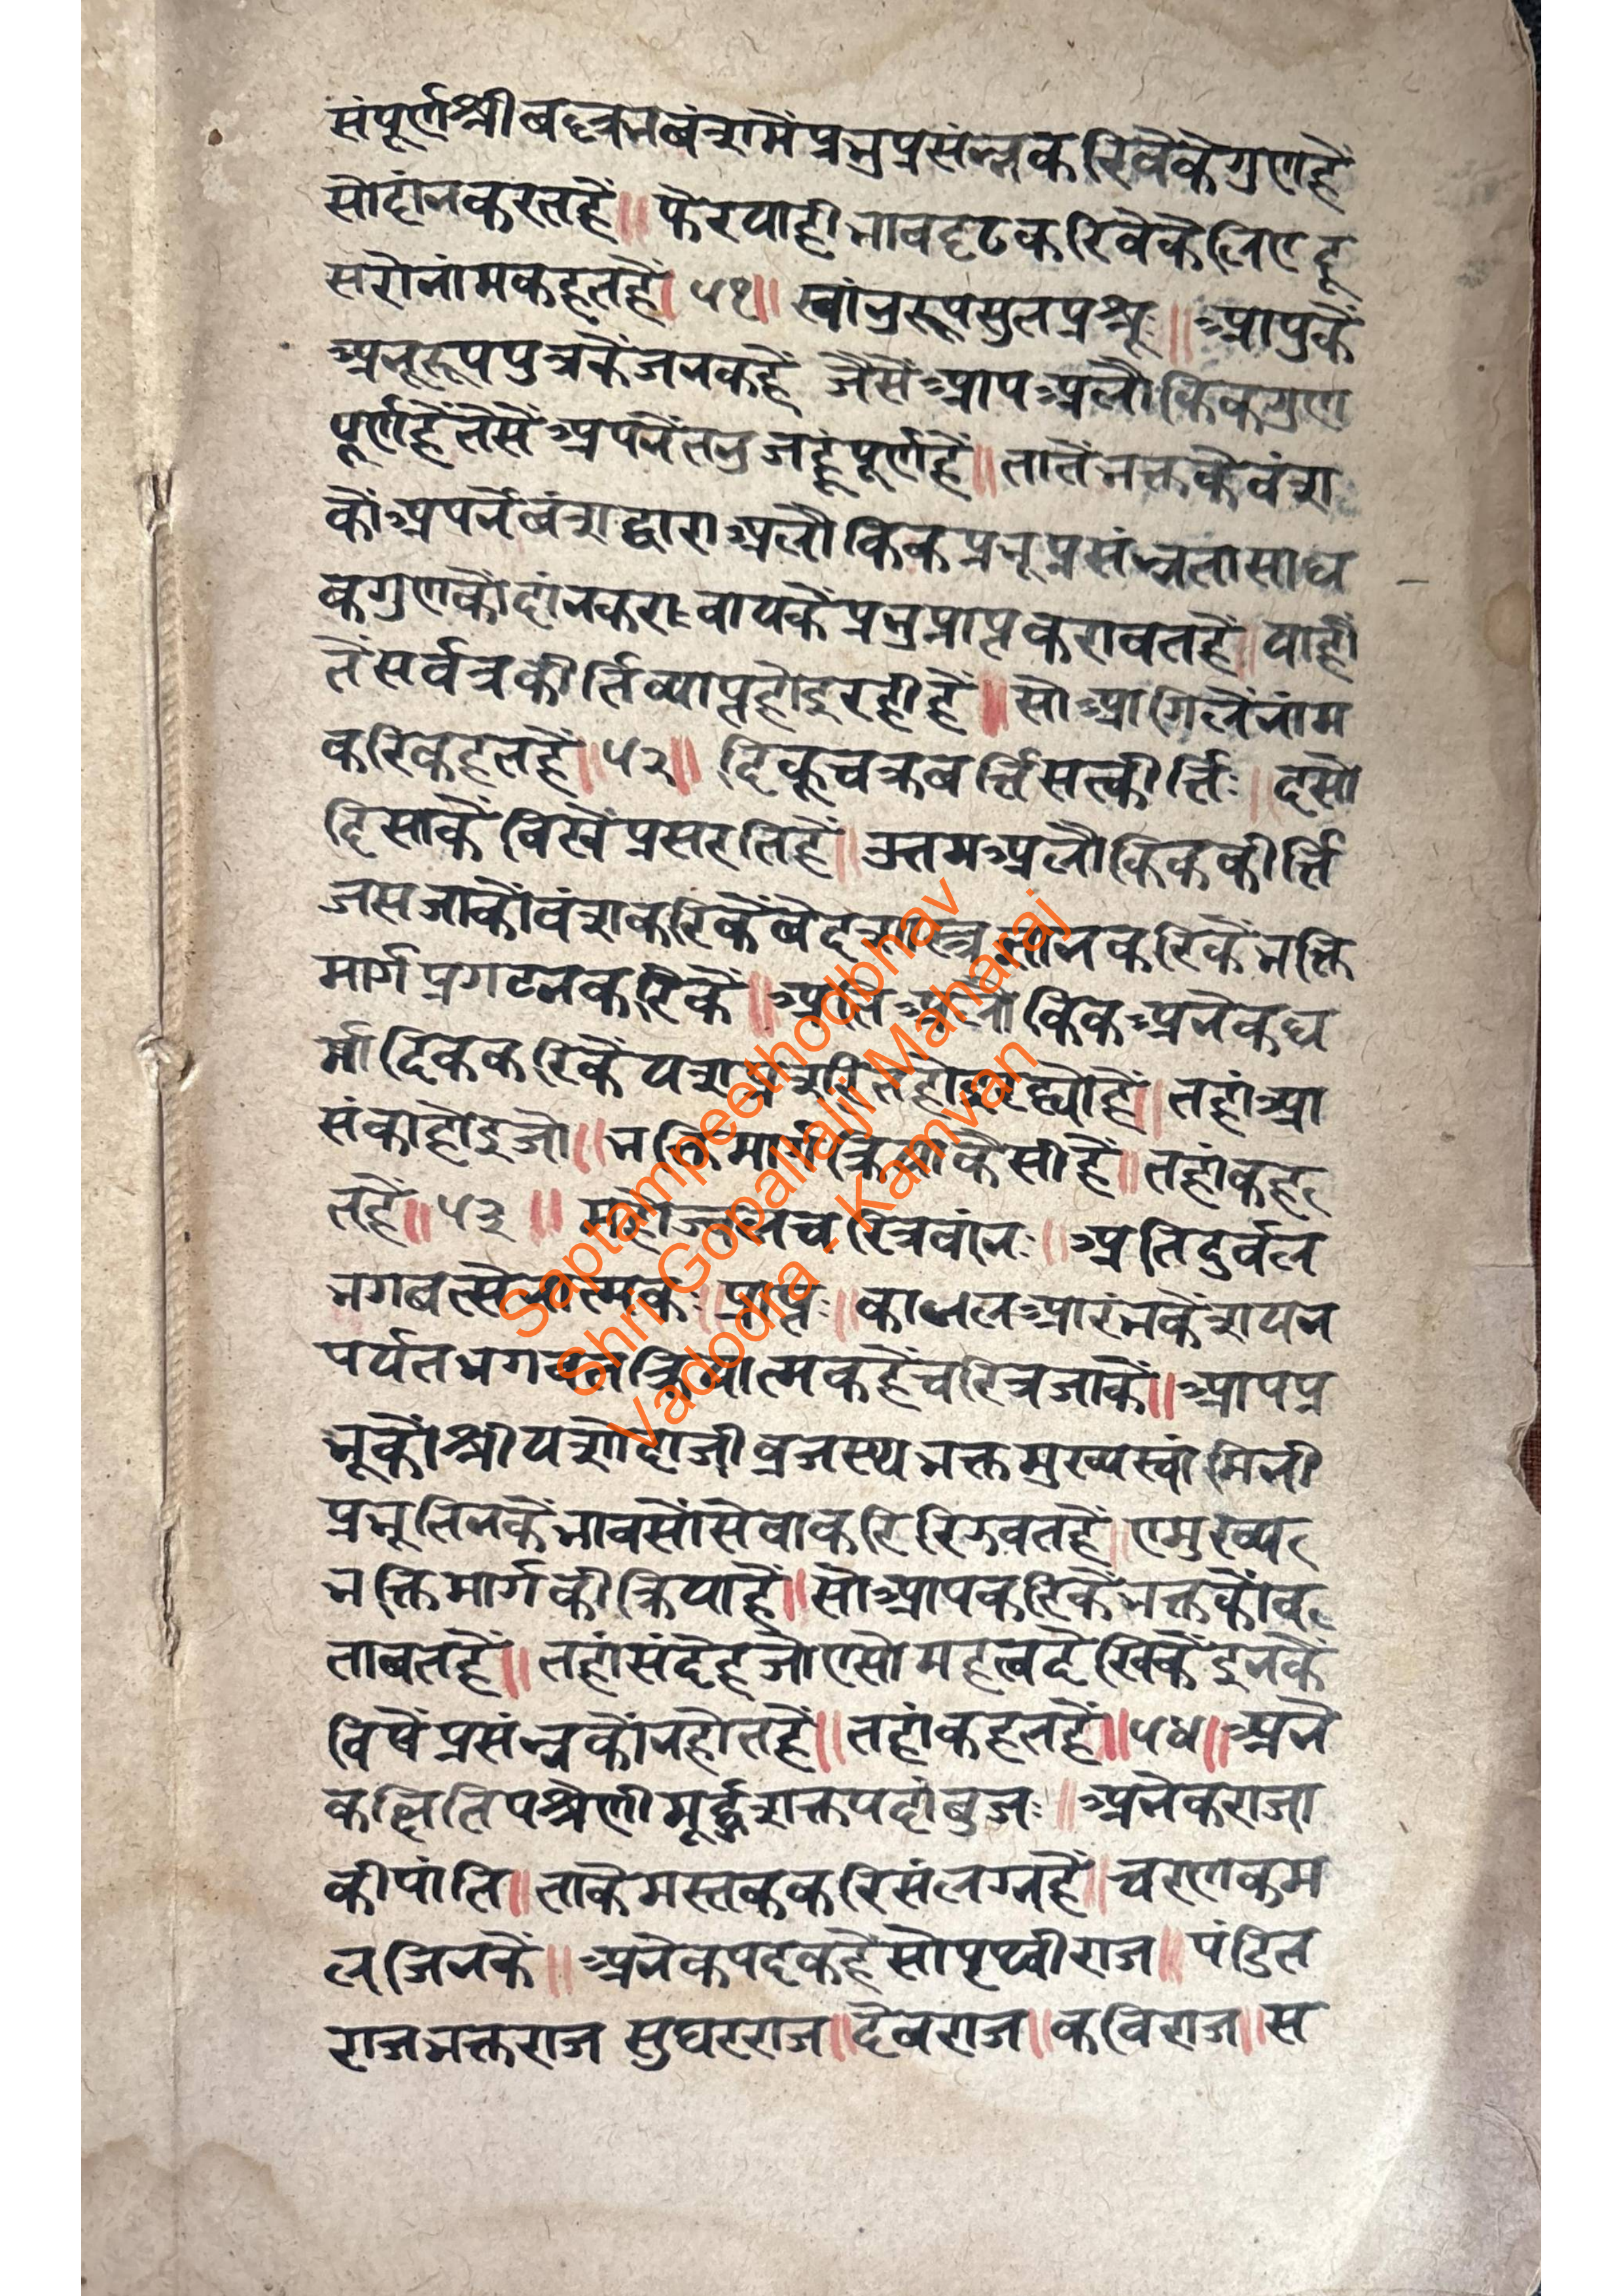 संपूर्णश्रीबद्दत्रनबंशमैंप्रभुप्रसंन्नकरिवेकेगुणहैं
सोदांनकरतहैं॥ फेरयाहीभावदृढकरिवेकैलिएदू
सरोनांमकहतहैं। ५१॥ स्वांनुरूपसुतप्रश्नूः॥ आपुकें
अनूरूपपुत्रकेंजनकहैं जैसेंआपअलौकिकगुण
पूर्णहैंतैसेंअपनेंतनुजहूंपूर्णहैं॥ तातेंभक्तकेवंश
कौंअपनेंबंशद्वाराअलौकिकप्रभूप्रसंन्नतासाध
कगुणकोदांनकरा॰वायकेंप्रभुप्राप्तकरावतहैं॥ याही
तेंसर्वत्रकीर्तिव्याप्तहोइरहीहैं॥ सोआगिलेंनांम
करिकहतहैं॥५२॥ दिक्चक्रबर्त्तिसत्कीर्त्तिः॥ दसो
दिसाकेंबिखेंप्रसरतिहैं॥ उत्तमअलौकिककीर्त्ति
जसजाकोंवंशकरिकेंबेदशास्त्रतानकरिकेंभक्ति
मार्गप्रगटनकरिकें॥ अतिअलौकिकअनेकध
र्मादिककरिकेंयशप्रशरितहोइरह्योहैं॥ तहांआ
संकाहोइजो॥ भक्तिमार्गीक्रियाकैसीहैं॥ तहांकह
तहैं॥ ५३ ॥ महोज्वलचरित्रवांनः॥ अतिदुर्वल
भगबत्सेवात्मकः॥ प्राप्तः॥ काजलआरंभकेंशयन
पर्यतभगवतक्रियात्मकहैंचरित्रजाकें॥ आपप्र
भूकोंश्रीयशोदाजीव्रजस्थभक्तमुख्यस्वांमिनी
प्रभूतिनकेंभावसोंसेवाकरिरिझवतहैं॥ एमुख्य
भक्तिमार्गकीक्रियाहैं॥ सोआपकरिकेंभक्तकोंब
ताबतहैं॥ तहांसंदेहजोएसोमहत्वदेखिकेंइनकें
विषेंप्रसंन्नकोंनहोतहैं॥ तहांकहतहैं॥५४॥ अने
कक्षितिपश्रेणीमूर्द्धशक्तपदांबुजः॥ अनेकराजा
कीपांति॥ ताकेमस्तककरिसंलग्नहैं॥ चरणकम
लजिनकें॥ अनेकपदकहेंसोपृथ्वीराज॥ पंडित
राजभक्तराज सुघरराज॥ देवराज॥ कविराज॥ स
Saptampeethodbhav
Shri Gopallalji Maharaj
Vadodra - Kamvan